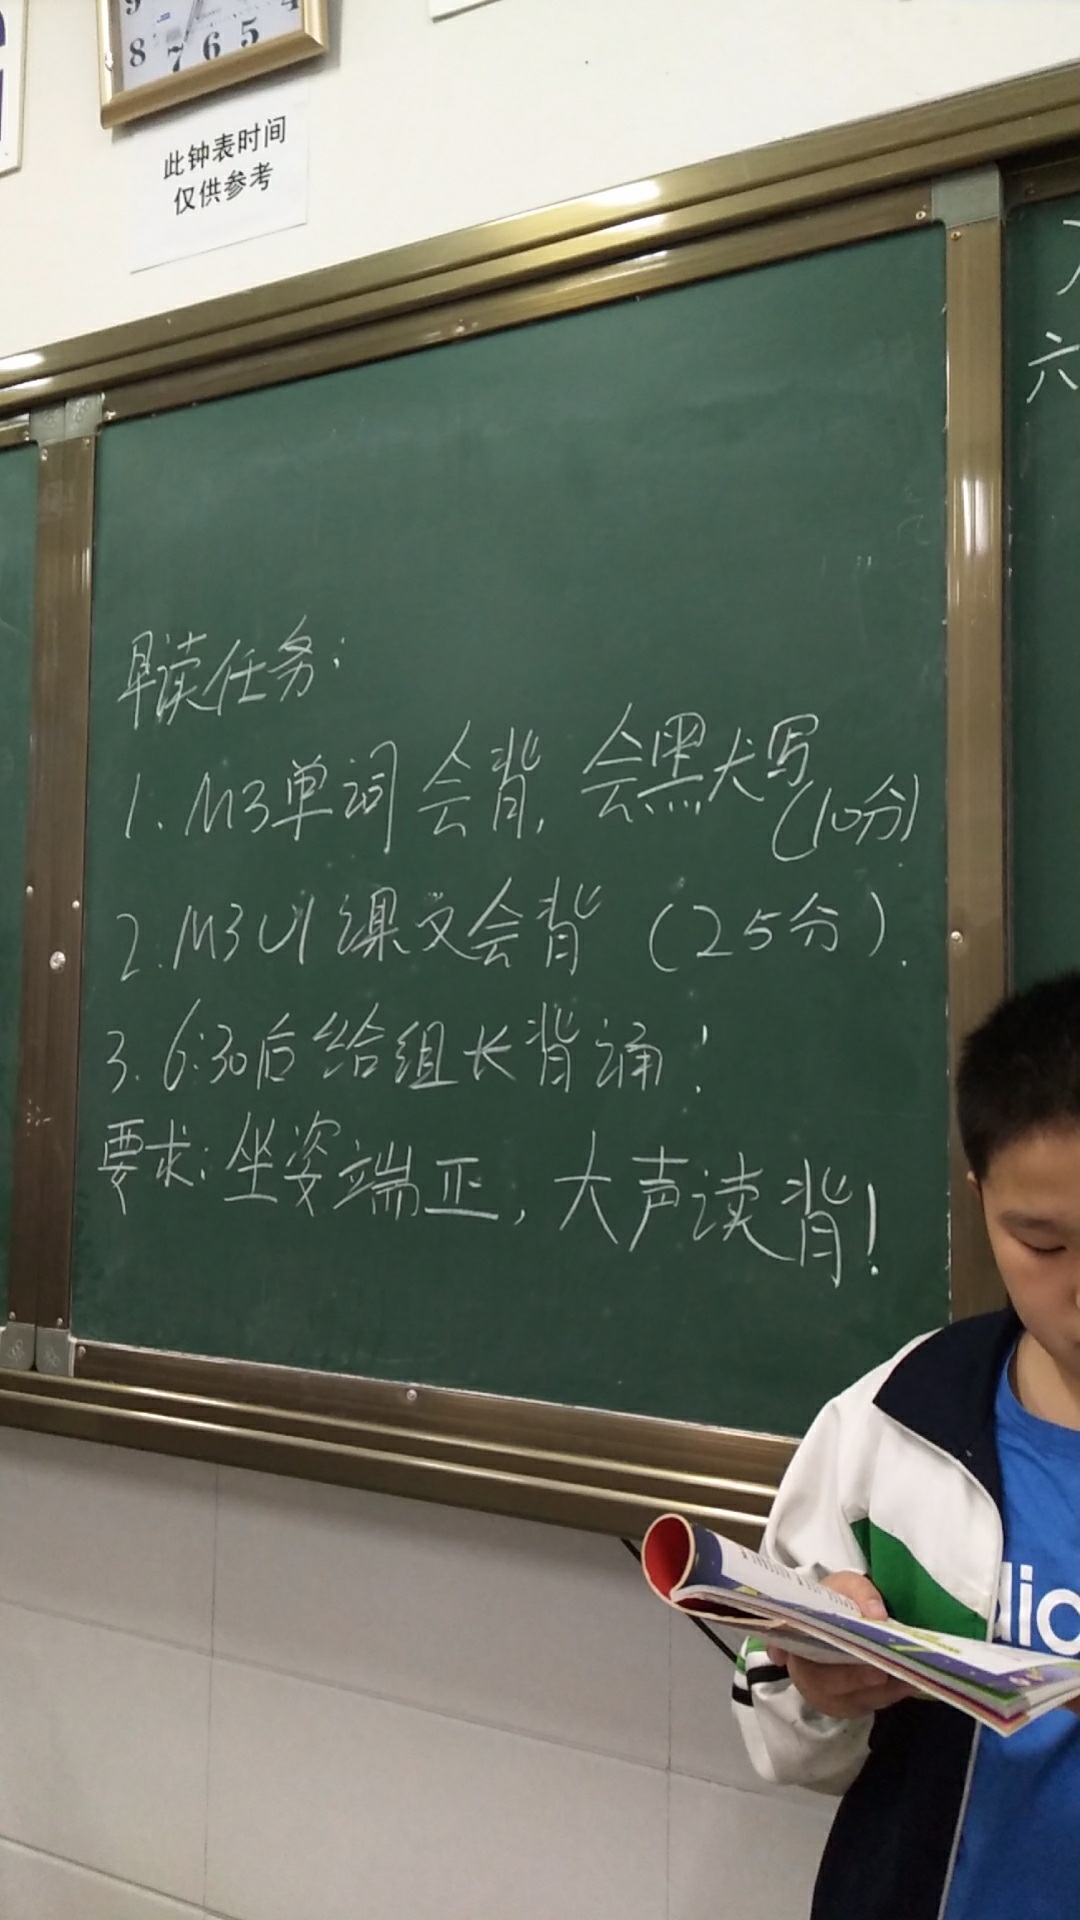 9
8 7 6 5 4
此钟表时间
仅供参考
六
早读任务:
1. M3单词会背, 会默写
(10分)
2. M3U1课文会背 (25分).
3. 6:30后给组长背诵!
要求: 坐姿端正, 大声读背!